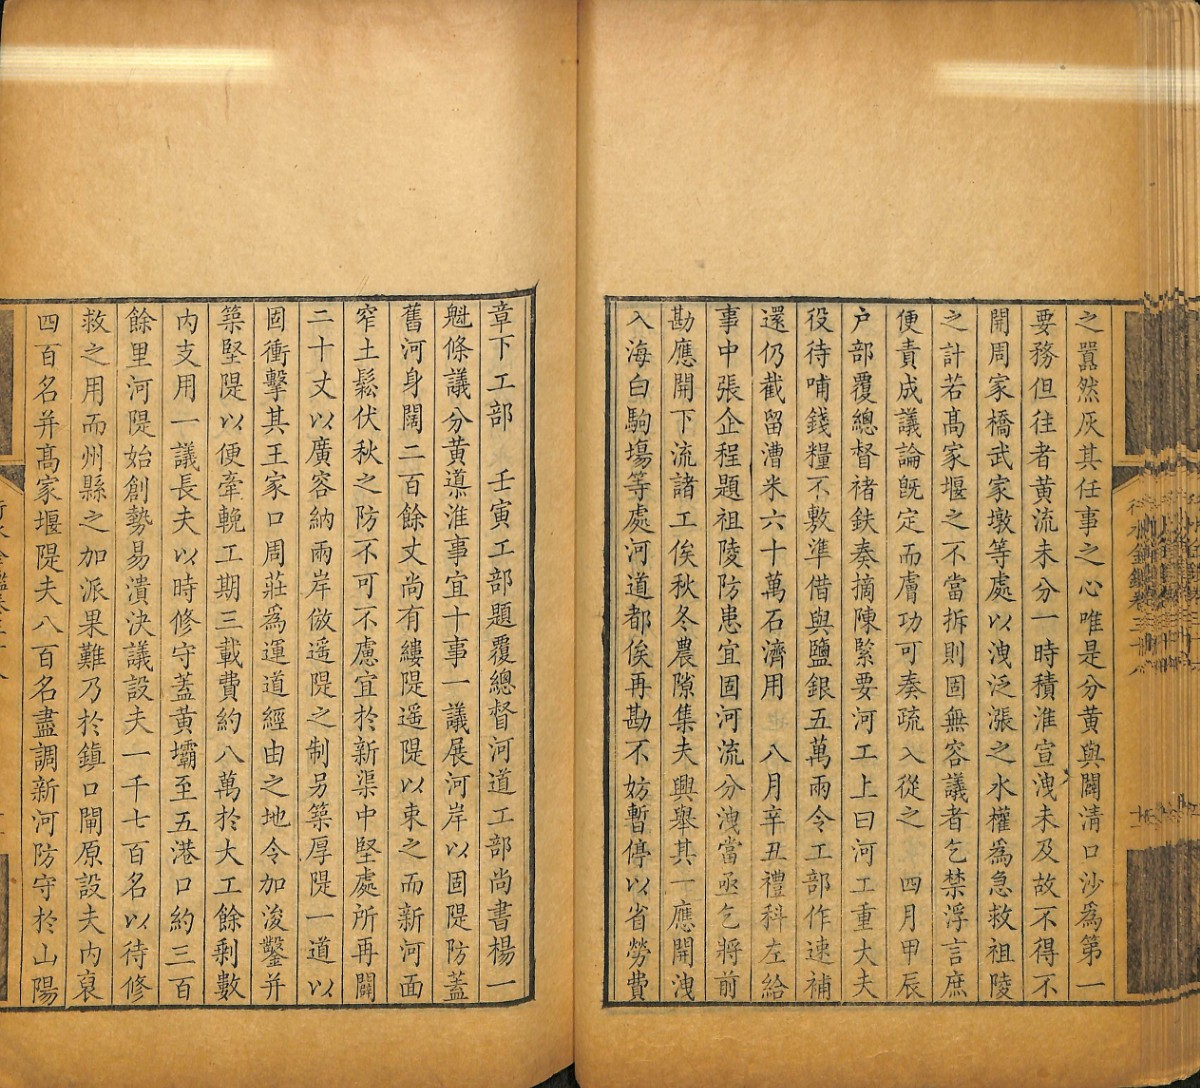 之囂然灰其任事之心唯是分黃與闢清口沙爲第一
要務但往者黃流未分一時積淮宣洩未及故不得不
開周家橋武家墩等處以洩泛漲之水權爲急救祖陵
之計若髙家堰之不當拆則固無容議者乞禁浮言庶
便責成議論旣定而膚功可奏疏入從之　四月甲辰
户部覆總督禇鈇奏摘陳緊要河工上曰河工重大夫
役待哺錢糧不敷準借與鹽銀五萬兩令工部作速補
還仍截留漕米六十萬石濟用　八月辛丑禮科左給
事中張企程題祖陵防患宜固河流分洩當亟乞將前
勘應開下流諸工俟秋冬農隙集夫興舉其一應開洩
入海白駒塲等處河道都俟再勘不妨暫停以省勞費
章下工部　壬寅工部題覆總督河道工部尚書楊一
魁條議分黃導淮事宜十事一議展河岸以固隄防蓋
舊河身闊二百餘丈尚有縷隄遥隄以束之而新河面
窄土鬆伏秋之防不可不慮宜於新渠中堅處所再闢
二十丈以廣容納兩岸倣遥隄之制另築厚隄一道以
固衝擊其王家口周莊爲運道經由之地令加浚鑿并
築堅隄以便牽輓工期三載費約八萬於大工餘剩數
内支用一議長夫以時修守蓋黃壩至五港口約三百
餘里河隄始創勢易潰決議設夫一千七百名以待修
救之用而州縣之加派果難乃於鎮口閘原設夫内裒
四百名并髙家堰隄夫八百名盡調新河防守於山陽